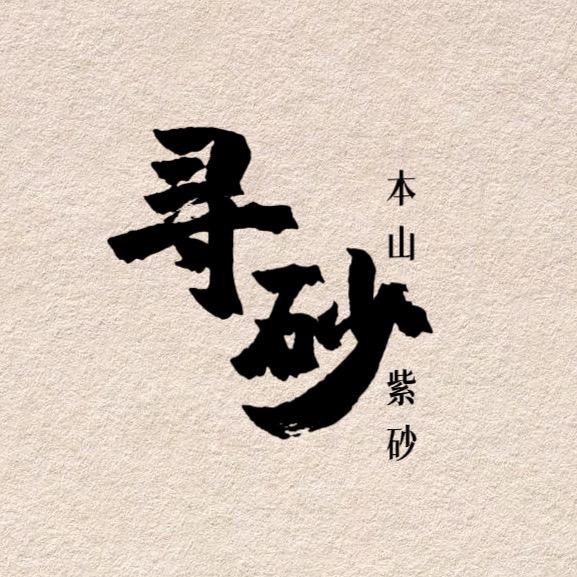 寻砂
本山
紫砂